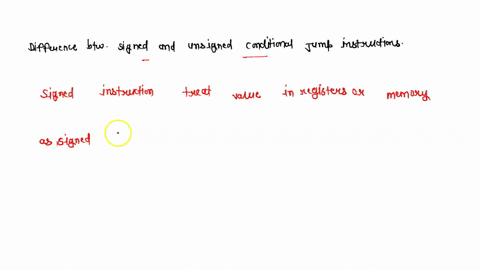 Difference btw. signed and unsigned conditional jump instructions.
Signed instruction treat value in registers or memory
as signed